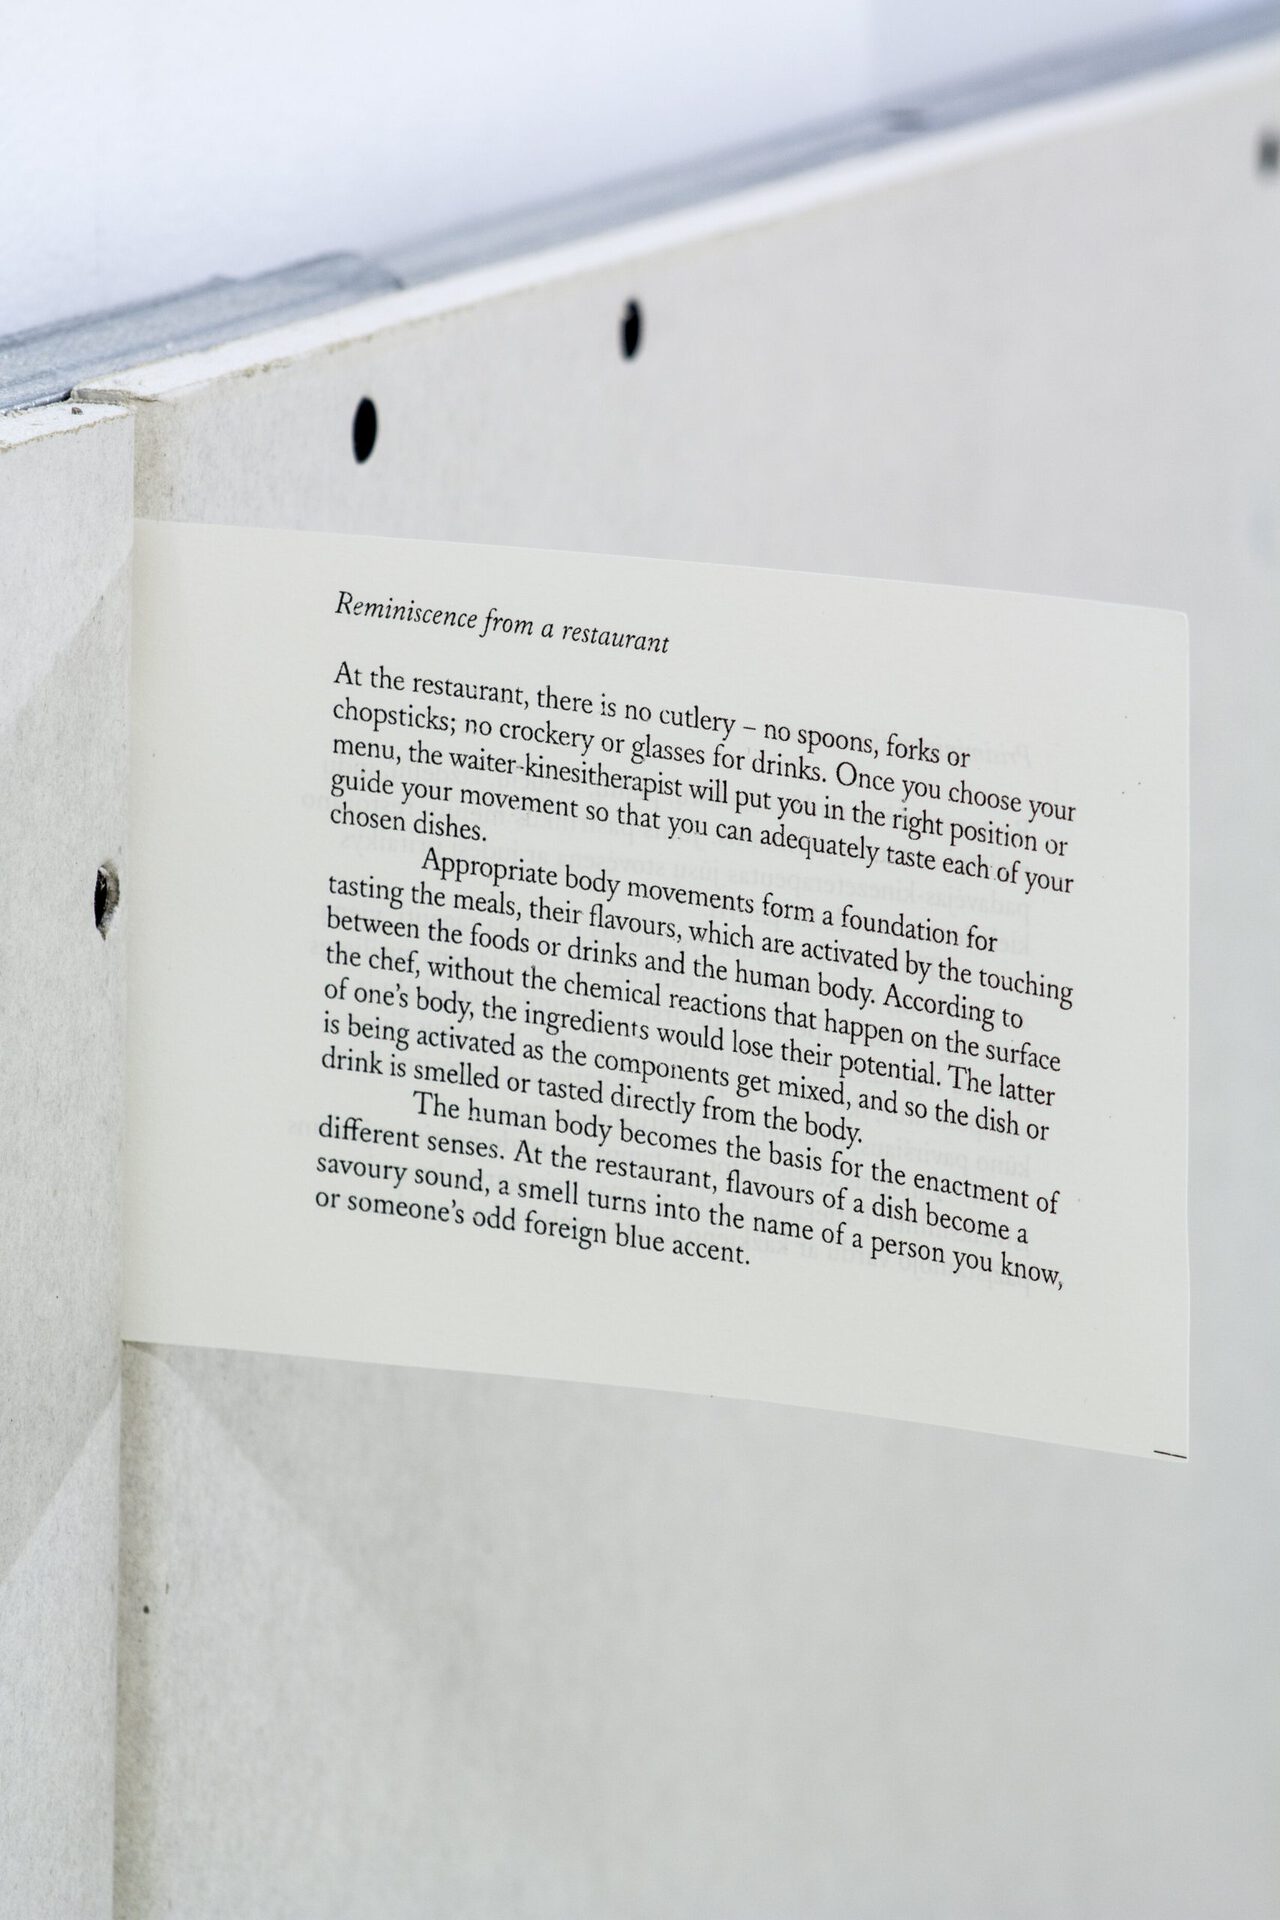 Reminiscence from a restaurant
At the restaurant, there is no cutlery – no spoons, forks or
chopsticks; no crockery or glasses for drinks. Once you choose your
menu, the waiter-kinesitherapist will put you in the right position or
guide your movement so that you can adequately taste each of your
chosen dishes.
Appropriate body movements form a foundation for
tasting the meals, their flavours, which are activated by the touching
between the foods or drinks and the human body. According to
the chef, without the chemical reactions that happen on the surface
of one's body, the ingredients would lose their potential. The latter
is being activated as the components get mixed, and so the dish or
drink is smelled or tasted directly from the body.
The human body becomes the basis for the enactment of
different senses. At the restaurant, flavours of a dish become a
savoury sound, a smell turns into the name of a person you know,
or someone's odd foreign blue accent.